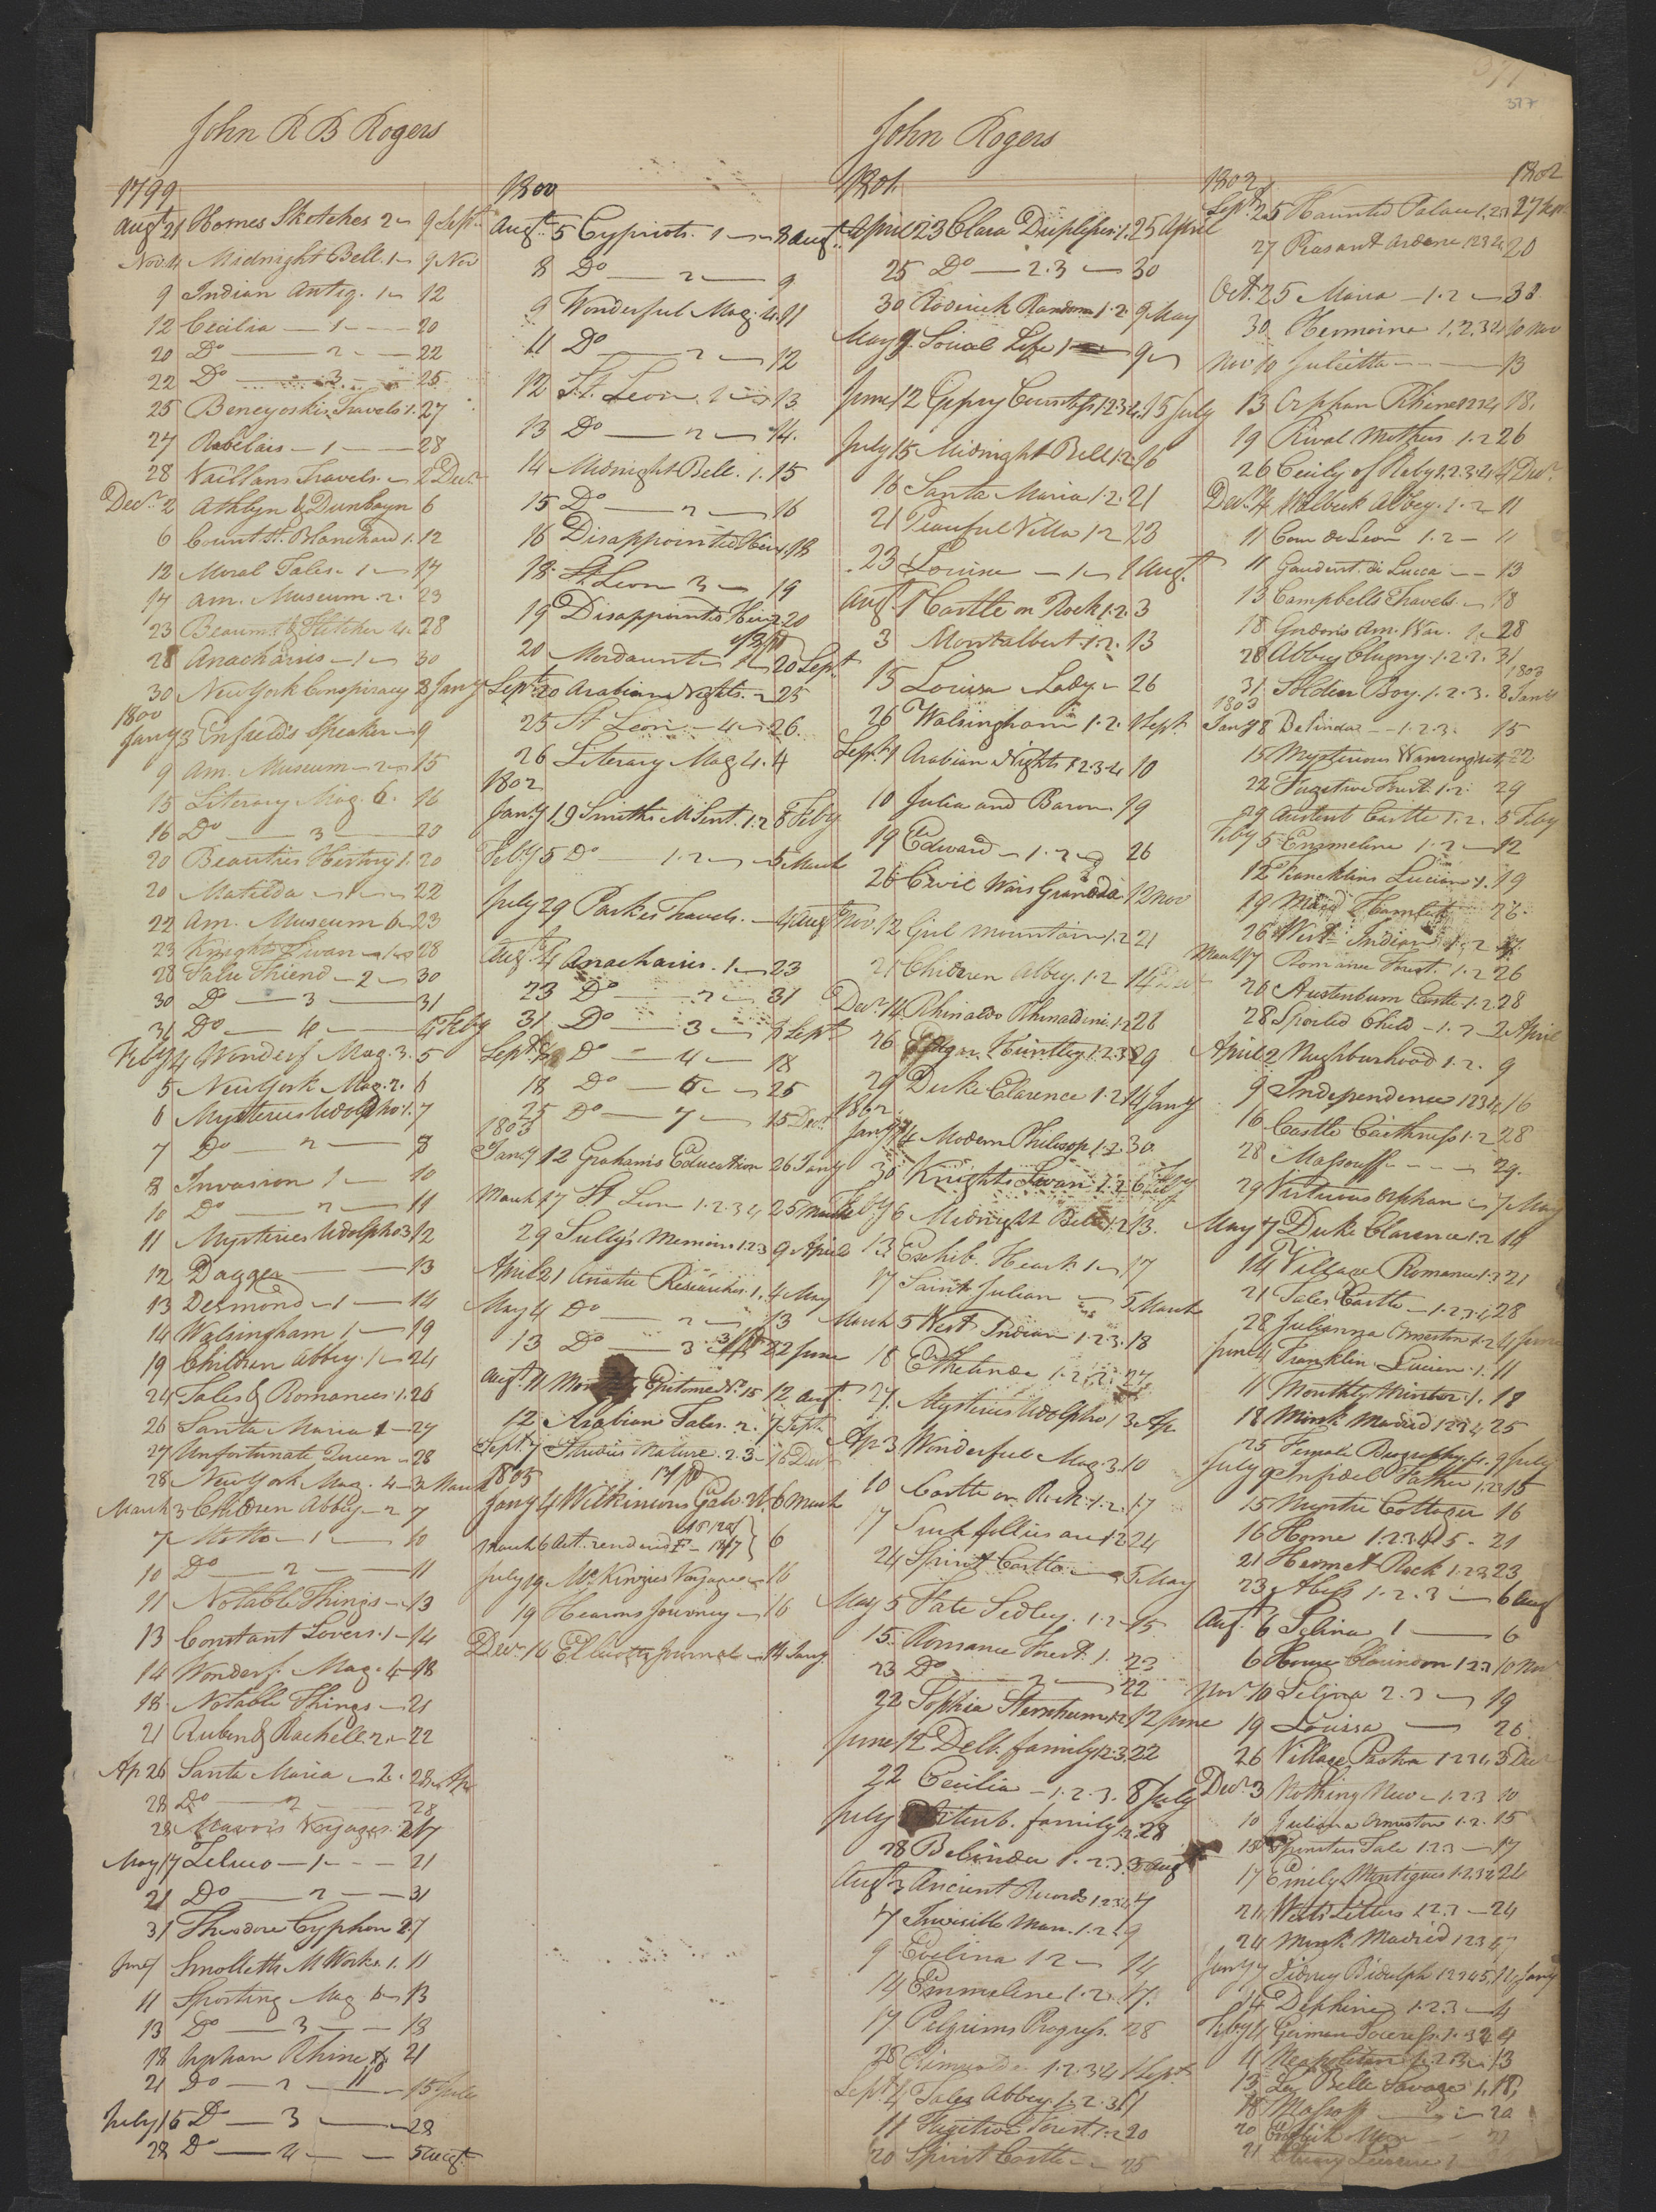 377
John R B Rogers
1799
Augt 21 Homes Sketches 2 9 Sept
Nov 4 Midnight Bell. 1 9 Nov
9 Indian Antiq. 1 12
12 Cecilia — 1 — 20
20 Do — 2 — 22
22 Do — 3 — 25
25 Beneyoskis Travels 1. 27
27 Rabelais — 1 — 28
28 Vaillans Travels. 2 Decr
Decr 2 Athlyn & Dunbayn 6
6 Count St. Blanchard 1. 12
12 Moral Tales 1 17
17 Am. Museum 2. 23
23 Beaumt & Fletcher 4. 28
28 Anacharsis — 1 30
30 New York Conspiracy 3 Jany
1800
Jany 3 Enfields Speaker 9
9 Am. Museum — 2 15
15 Literary Mag. 6. 16
16 Do — 3 — 20
20 Beauties History 1. 20
20 Matilda 22
22 Am. Museum 6 23
23 Knights Swan — 1 28
28 False Friend — 2 30
30 Do — 3 — 31
31 Do — 4 — 4 Feby
Feby 4 Wonderf Mag. 3. 5
5 New York Mag. 2. 6
6 Mysteries Udolpho 1. 7
7 Do — 2 — 8
8 Invasion 1 — 10
10 Do — 2 — 11
11 Mysteries Udolpho 3 12
12 Dagger — 13
13 Desmond — 1 — 14
14 Walsingham 1 — 19
19 Children Abbey. 1 — 24
24 Tales & Romances 1. 26
26 Santa Maria 1 — 27
27 Unfortunate Queen 28
28 New York Mag. 4 — 3 March
March 3 Children Abbey — 2 7
7 Motto — 1 — 10
10 Do — 2 — 11
11 Notable Things — 13
13 Constant Lovers. 1 — 14
14 Wonderf. Mag. 4 — 18
18 Notable Things — 21
21 Ruben & Rachell. 2 22
Ap 26 Santa Maria 2. 28 Ap
28 Do — 2 — 28
28 Mavors Voyages. 2 17
May 17 Zeluco — 1 — 21
21 Do — 2 — 31
31 Theodore Cyphon 2. 7
June 7 Smolletts M Works. 1. 11
11 Sporting Mag 6 13
13 Do — 3 — 18
18 Orphan Rhine 21
21 Do — 2 — 15 July
July 15 Do — 3 — 28
28 Do — 4 — 5 Augt
1800
Augt. 5 Cypriots. 1 8 Augt.
8 Do — 2 — 9
9 Wonderful Mag. 4. 11
11 Do — 2 — 12
12 St. Leon. 1 13
13 Do — 2 — 14.
14 Midnight Bell. 1. 15
15 Do — 2 — 16
16 Disappointed Heir 1. 18
18 St Leon 3 — 19
19 Disappointed Heir 2 20
20 Mordaunt 20 Sept
Sept 20 Arabian Nights. 2 25
25 St Leon — 4 26.
26 Literary Mag. 4. 4
1802
Jany 19 Smiths M Sent. 1. 2 8 Feby
Feby 5 Do — 1. 2 — 5 March
July 29 Parkes Travels. — 4 Augt
Augt. 4 Anacharsis. 1 23
23 Do — 2 — 31
31 Do — 3 — Sept
Sept Do — 4 — 18
18 Do — 25
25 Do — 7 — 15 Decr
1803
Jany 12 Grahams Education 26 Jany
March 17 St. Leon 1. 2. 3 4 25 March
29 Sully's Memoirs 1. 2. 3 9 April
April 21 Asiatic Researches. 1. 4 May
May 4 Do — 2 — 13
13 Do — 3 22 June
Augt. 11 Epitome No. 15 12 Augt.
12 Arabian Tales. 2. 7 Sept.
Sept 7 Studies Nature. 2. 3 16 Decr
1805
Jany 4 Wilkinsons 6 March
March 6 6
July 19 McKinzies Voyages 16
19 Hearns Journey — 16
Decr 16 Ellicotts Journal — 14 Jany
John Rogers
1801
April 23 Clara Duplessis 1. 25 April
25 Do — 2. 3 — 30
30 Roderick Random 1. 2. 9 May
May 9. Social Life 1 9
June 12 Gypsy Countess 1. 2. 3. 4. 15 July
July 15 Midnight Bell 1. 2 16
16 Santa Maria 1. 2. 21
21 Peaceful Villa 1. 2 23
23 Louisa — 1 1 Augt.
Augt 1 Castle on Rock 1. 2. 3
3 Montalbert 1. 2. 13
15 Louisa Lady 26
26 Walsingham 1. 2. 1 Sept
Sept. 1 Arabian Nights 1 2. 3. 4 10
10 Julia and Baron. 19
19 Edward — 1. 2 26
26 Civil Wars Granada 12 Nov
Nov. 12 Girl Mountain 1. 2 21
21 Children Abbey. 1. 2 14 Decr
Decr 14 Rhinaldo Rhinaldini 1. 2 26
26 Edgar Huntley 1. 2. 3 29
29 Duke Clarence 1. 2 14 Jany
1802
Jany 14 Modern Philosop 1. 2. 30.
30 Knights Swan. 1. 2 6 Feby
Feby 6 Midnight Bell 1. 2 13.
13 Exhib. Heart 1 17
17 Saint Julian — 5 March
March 5 West Indian 1. 2. 3. 18
18 Ethelinde 1. 2. 27
27. Mysteries Udolpho 1 3 Ap
Ap 3 Wonderful Mag. 3. 10
10 Castle on Rock. 1. 2. 17
17 Such follies are 1 2 24
24 Spirit Castle 5 May
May 5 Kate Sedley. 1. 2 15
15. Romance Forest 1. 23
23 Do — 2 — 22
22 Sophia Sternheim 1. 2 12 June
June 12 Delb. family 1. 2. 3. 22
22 Cecilia — 1. 2. 3. 8 July
July family 1. 2. 28
28 Belinda 1. 2. 3. 3 Augt
Augt. 3 Ancient Records 1 2 3 4 7
7 Invisible Man. 1. 2. 9
9 Evelina 1 2 14
14 Emmeline 1. 2. 17.
17 Pelgrims Progress. 28
28 1. 2. 3 4 1 Sept
Sept 4 Tales Abbey 1. 2. 3 11
11 Fugitive Forest 1. 2 20
20 Spirit Castle 25
1802 1802
Sept. 25 Haunted Palace 1. 2 3 27 Sept
27 Peasant Ardenne 1 2 3 4 20
Oct. 25 Maria — 1. 2 — 30.
30 Hermoine 1. 2. 3 4 10 Nov
Nov 10 Julietta — 13
13 Orphan Rhine 1 2 3 4 18.
19 Rival Mothers 1. 2 26
26 Cecily of Raby 1. 2. 3. 4 4 Decr.
Decr. 4 Welbeck Abbey. 1. 2 11
11 Coeur de Leon 1. 2 — 11
11 Gaudent. di Lucca — 13
13 Campbells Travels. 18
18 Gordons Am. War. 1. 28
28 Abbey Clugny. 1. 2. 3. 31
1803
31. Soldier Boy. 1. 2. 3. 8 Jany
1803
Jany 8 Belinda — 1. 2. 3. 15
15 Mysterious Warning 22
22 Fugitive Forest. 1. 2. 29
29 Austenb Castle 1. 2. 5 Feby
Feby 5 Emmeline 1. 2 — 12
12 Francklins Lucian 1. 19
19 Maid Hamlet 26.
26 West Indian 1. 2
March 7 Romance Forest. 1. 2 26
26 Austenburn Castle. 1. 2. 28
28 Spoiled Child — 1. 2 2 April
April 2 Neighbourhood 1. 2. 9
9 Independence 1 2 3 4 16
16 Castle Caithness 1. 2 28
28 Massouff — 29.
29 Virtuous Orphan 7 May
May 7 Duke Clarence 1. 2 14
14 Village Romance 1. 2 21
21 Tales Castle — 1. 2. 3. 4 28
28 Julianna Ormeston 1. 2 4 June
June 4 Franklin Lucian. 1. 11
11 Monthly Mirror. 1. 18
18 Monk Madrid 1 2 3 4 25
25 Female Biography 4. 9 July
July 9 Infidel Father 1. 2. 3 15
15 Myrtle Cottager 16
16 Horne 1. 2 3 4 5 — 21
21 Hermet Rock 1. 2 3 23
23 Abess 1. 2. 3 — 6 Aug
Aug. 6 Selina 1 — 6
6 House Clarindon 1 2 3 10 Nov
Nov. 10 Selina 2. 3 — 19
19 Louisa — 26
26 Village Pastor 1 2 3 4 3 Decr
Decr 3 Nothing New — 1. 2 3 10
10 Juliana Ormestone 1. 2. 15
15 Spinsters Tale 1 2. 3 — 17
17 Emily Montigue 1. 2. 3 4 24
21 Wells Letters 1. 2. 3 — 24
24 Monk Madrid 1 2 3 4
Jany 7 Sidney Bidulph 1 2 3 4 5 14 Jany
14 Delphine 1. 2. 3 — 4
Feby 4 German Sorceress 1. 3 4 4
4 Neapolitan 1. 2. 3 13
13 La Belle Savage 1, 18
18 Massoff 20
20
21